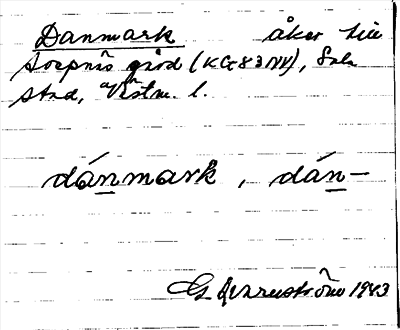 Danmark åker till
Sorpnäs gård (KG83NV), Sala
stad, Västm. l.
dánmark, dán-
1943